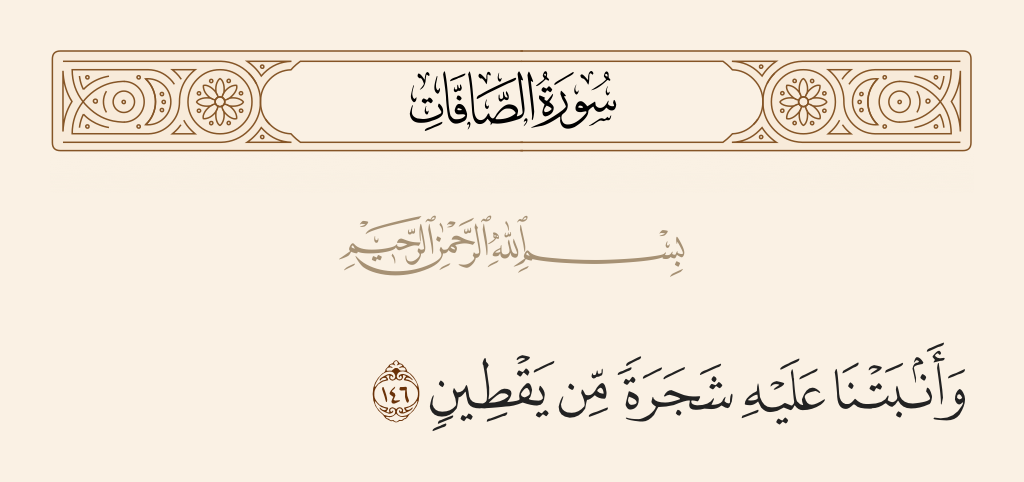 سُورَةُ الصَّافَّاتِ
بِسْمِ ٱللَّهِ ٱلرَّحْمَٰنِ ٱلرَّحِيمِ
وَأَنۢبَتْنَا عَلَيْهِ شَجَرَةً مِّن يَقْطِينٍ ١٤٦